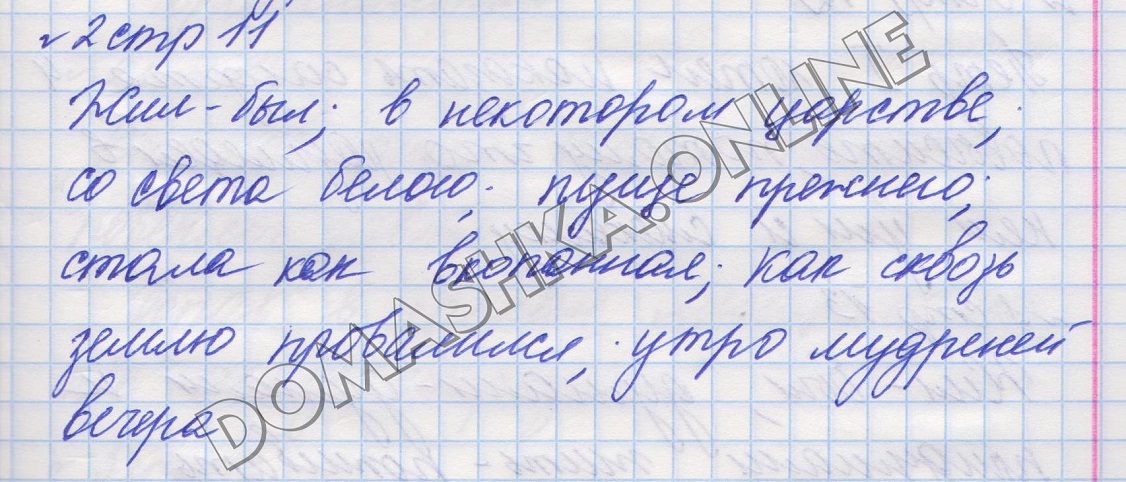 №2 стр 11
Жил-был; в некотором царстве;
со света белого; пуще прежнего;
стала как вкопанная; как сквозь
землю провалился; утро мудреней
вечера
DOMASHKA.ONLINE